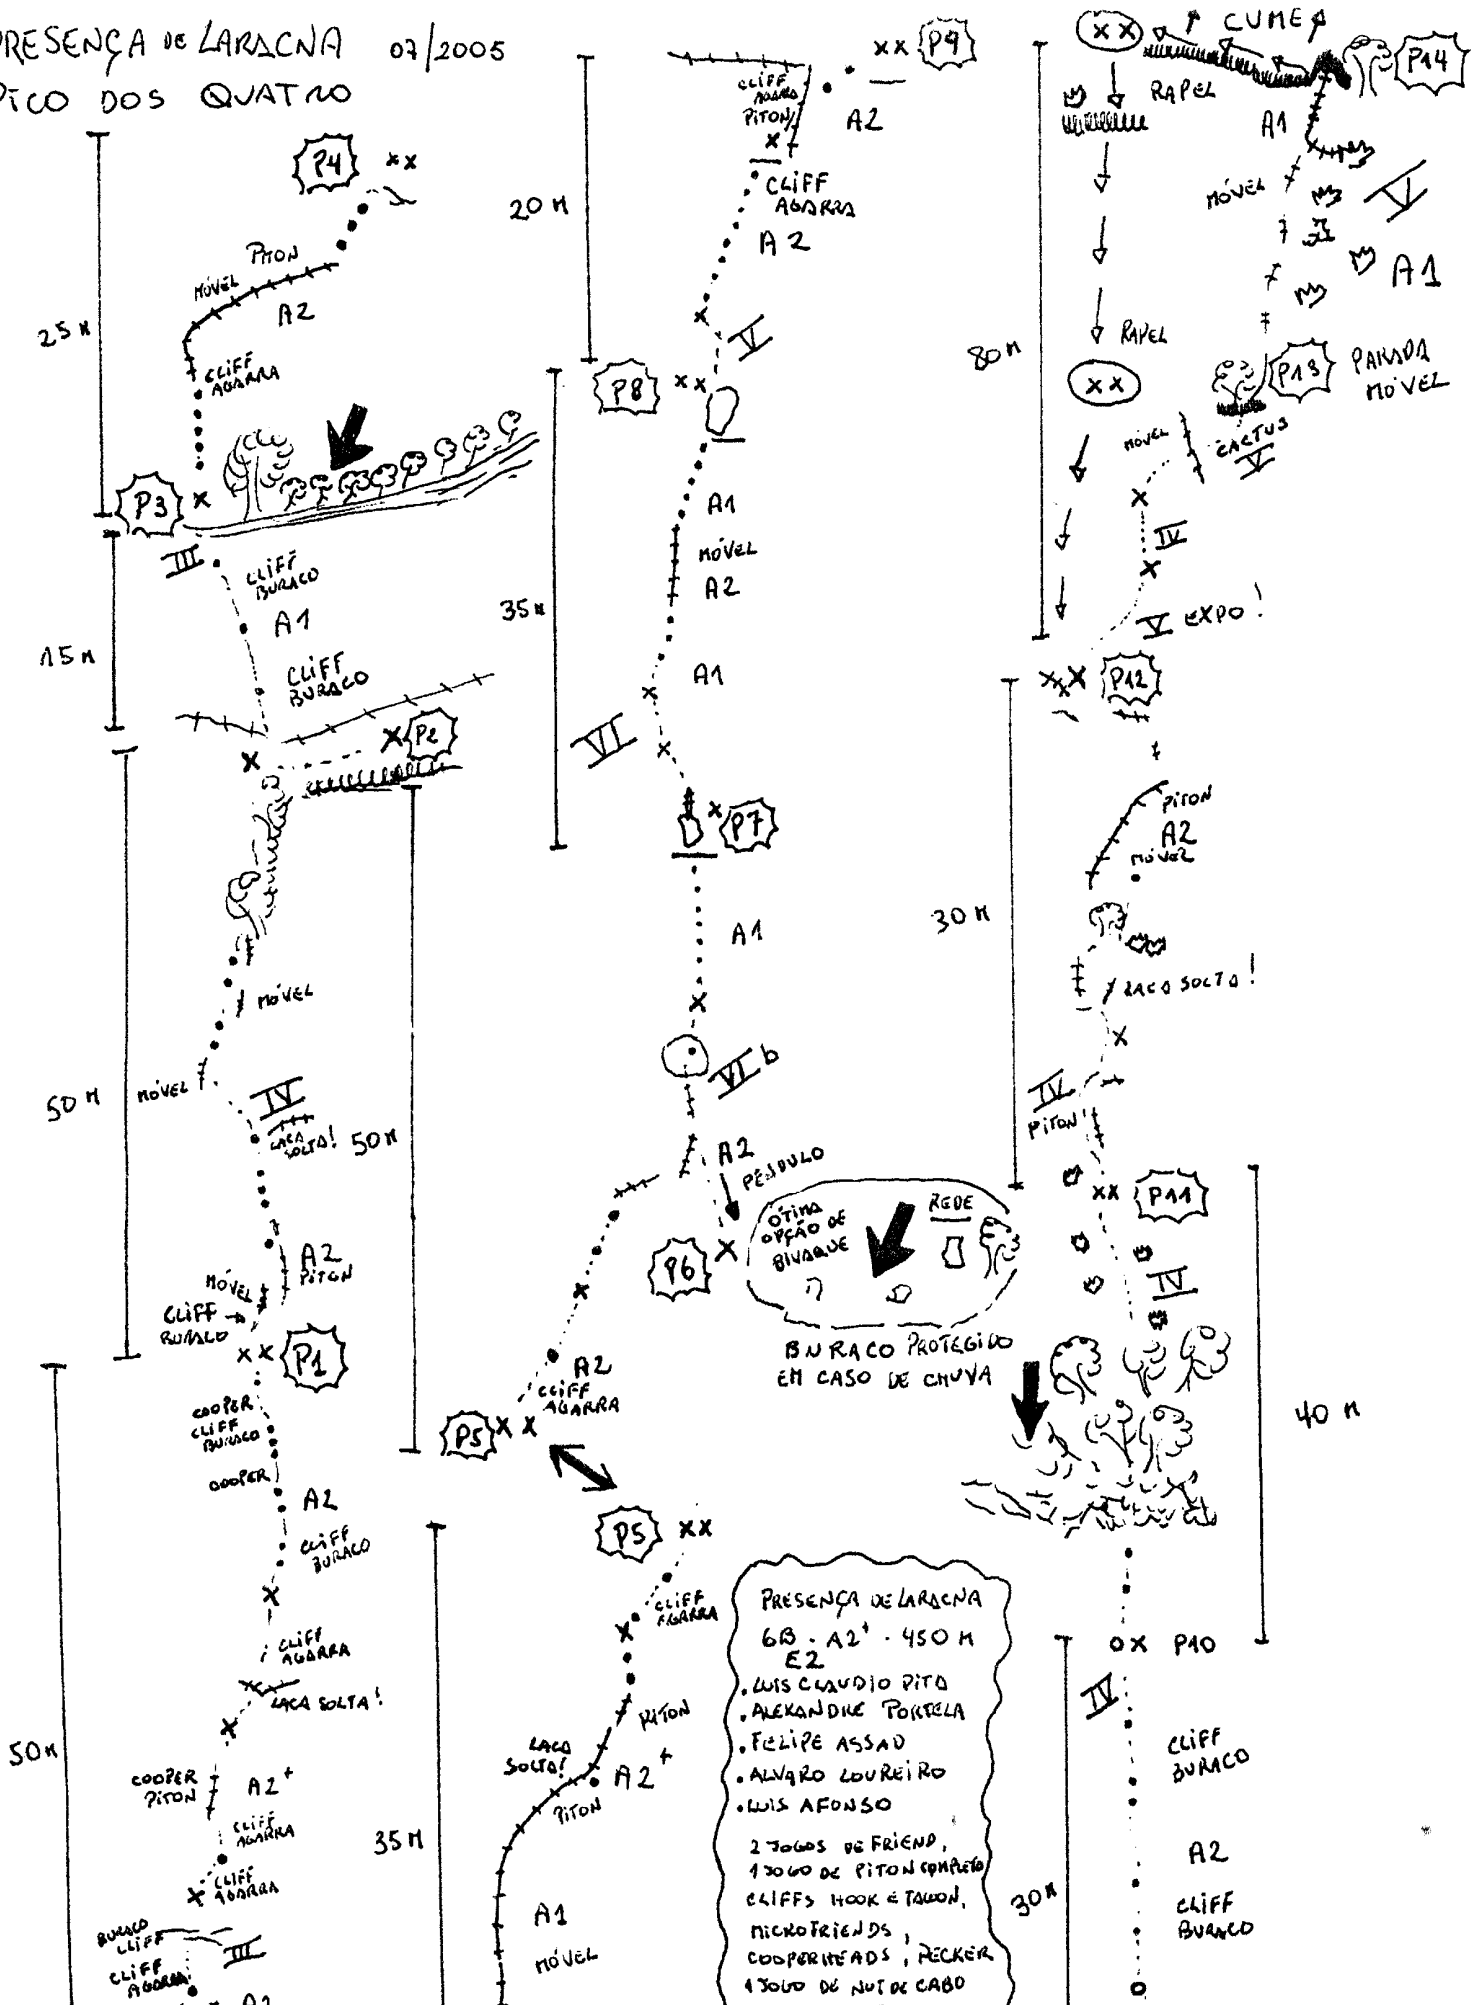 PRESENÇA DE LARACNA 07/2005
PICO DOS QUATRO
P4 xx
PITON
MÓVEL
A2
25 M
CLIFF
AGARRA
P3
III
CLIFF
BURACO
A1
15 M
CLIFF
BURACO
P2
MÓVEL
MÓVEL
50 M
IV
LACA
SOLTA!
50 M
A2
PITON
MÓVEL
CLIFF
BURACO
P1
COOPER
CLIFF
BURACO
COOPER
A2
CLIFF
BURACO
CLIFF
AGARRA
LACA SOLTA!
50 M
COOPER
PITON
A2+
CLIFF
AGARRA
CLIFF
AGARRA
BURACO
CLIFF
III
CLIFF
AGARRA
A2
xx P9
CLIFF
AGARRA
PITON
A2
20 M
CLIFF
AGARRA
A2
V
P8 xx
A1
MÓVEL
A2
35 M
A1
VI
P7
A1
VI b
A2
PENDULO
P6
ÓTIMA
OPÇÃO DE
BIVAQUE
REDE
BURACO PROTEGIDO
EM CASO DE CHUVA
A2
CLIFF
AGARRA
P5 XX
P5 XX
CLIFF
AGARRA
PITON
LACA
SOLTA!
A2+
PITON
35 M
A1
MÓVEL
PRESENÇA DE LARACNA
6B . A2+ . 450 M
E2
. LUIS CLAUDIO PITA
. ALEXANDRE PORTELA
. FELIPE ASSAD
. ALVARO LOUREIRO
. LUIS AFONSO
2 JOGOS DE FRIEND,
1 JOGO DE PITON COMPLETO
CLIFFS HOOK E TALON,
MICROFRIENDS,
COOPERHEADS, PECKER
1 JOGO DE NUT DE CABO
XX CUME
P14
RAPEL
A1
MÓVEL
V
A1
80 M
RAPEL
XX
P13 PARADA
MÓVEL
MÓVEL
CACTUS
V
IV
V EXPO!
P12
PITON
A2
MÓVEL
30 M
LACA SOLTA!
IV
PITON
XX P11
IV
40 M
OX P10
IV
CLIFF
BURACO
A2
CLIFF
BURACO
30 M